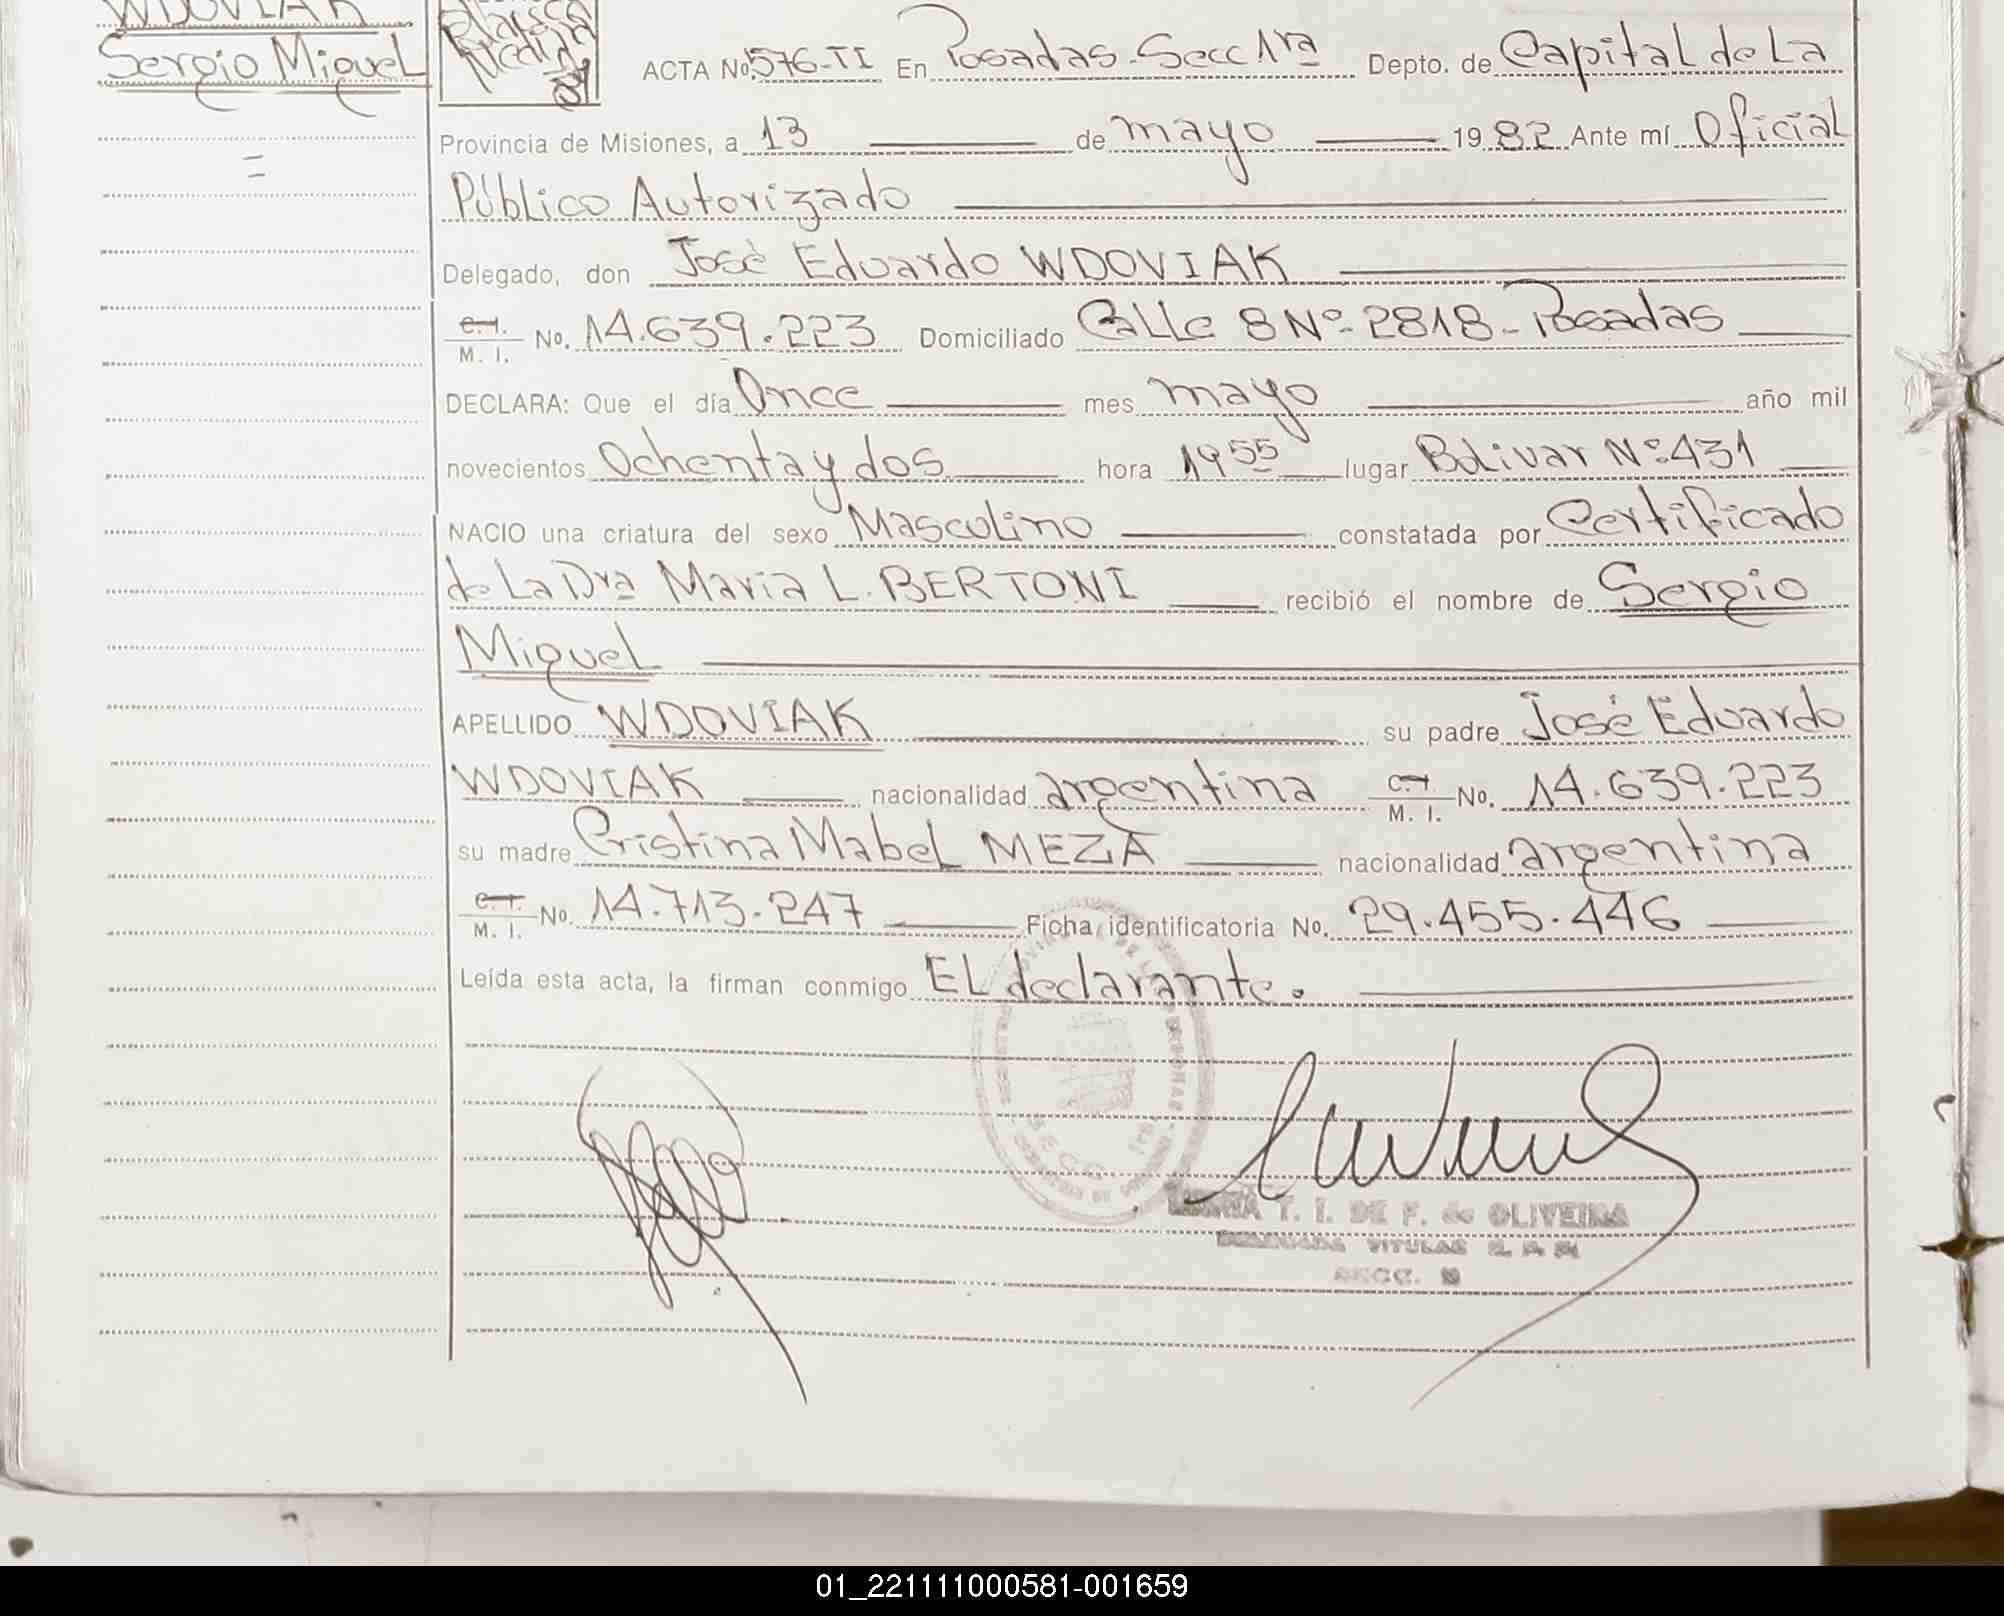 WDOVIAK
Sergio Miguel
=
ACTA No. 576-TI En Posadas-Secc 1ra Depto. de Capital de La
Provincia de Misiones, a 13 de mayo 1982 Ante mí Oficial
Público Autorizado
Delegado, don José Eduardo WDOVIAK
C.I. M. I. No. 14.639.223 Domiciliado Calle 8 Nº 2818-Posadas
DECLARA: Que el día Once mes mayo año mil
novecientos Ochenta y dos hora 1955 lugar Bolivar Nº 431
NACIO una criatura del sexo Masculino constatada por Certificado
de La Dra Maria L. BERTONI recibió el nombre de Sergio
Miguel
APELLIDO WDOVIAK su padre José Eduardo
WDOVIAK nacionalidad argentina C.I. M. I. No. 14.639.223
su madre Cristina Mabel MEZA nacionalidad argentina
C.I. M. I. No. 14.713.247 Ficha identificatoria No. 29.455.446
Leída esta acta, la firman conmigo EL declarante.
T. I. DE F. de OLIVEIRA
SECC.
01_221111000581-001659